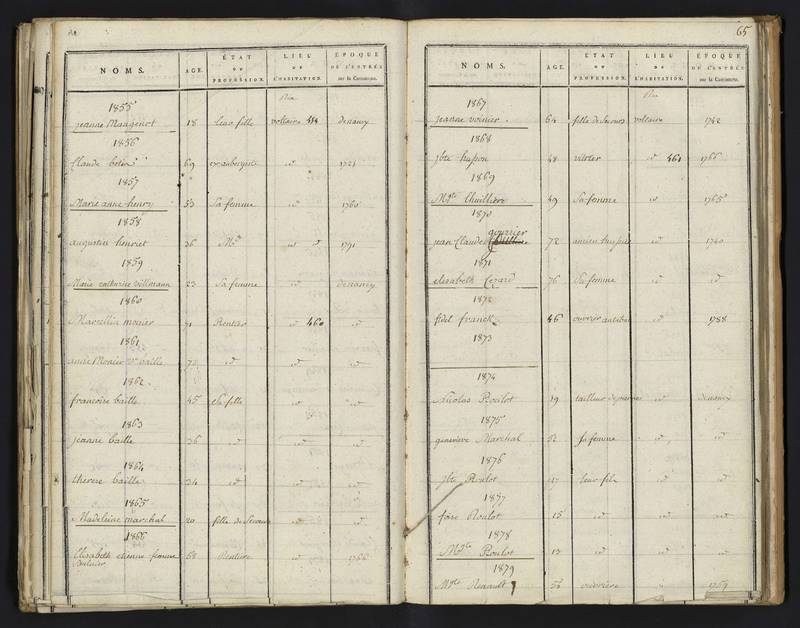 NOMS. AGE. ÉTAT OU PROFESSION. LIEU DE L'HABITATION. ÉPOQUE DE L'ENTRÉE sur la Commune.
Rue
1855
jeanne Maageart 18 leur fille voltaire 454 de nancy
1856
Claude 69 ex aubergiste id 1721
1857
Marie anne henry 53 Sa femme id 1760
1858
augustin henriet 36 Md id id 1791
1859
Marie catherine 23 Sa femme id de nancy
1860
Marcellin monier 71 Rentier id 460 id
1861
anne Monier ve baille 72 id id id
1862
francoise baille 45 sa fille id id
1863
jeanne baille 36 id id id
1864
therese baille 34 id id id
1865
Madeleine marchal 20 fille de Service id id
1866
Elisabeth etienne femme 68 Rentiere id 1766
65
NOMS. AGE. ÉTAT OU PROFESSION. LIEU DE L'HABITATION. ÉPOQUE DE L'ENTRÉE sur la Commune.
Rue
1867
jeanne voinier 64 fille de Service voltaire 1742
1868
jbte husson 48 vitrier id 461 1766
1869
Mgte Thuilliere 49 Sa femme id 1765
1870
jean Claude gourrier 78 ancien id 1740
1871
elisabeth Cezard 76 Sa femme id id
1872
fidel franck 46 ouvrier id 1788
1873
1874
Nicolas Roulot 19 tailleur de pierres id de nancy
1875
genevieve Marchal 52 sa femme id id
1876
jbte Roulot 17 leur fils id id
1877
Roulot 15 id id id
1878
Mgte Roulot 13 id id id
1879
Mgte Renault 56 ouvriere 1769